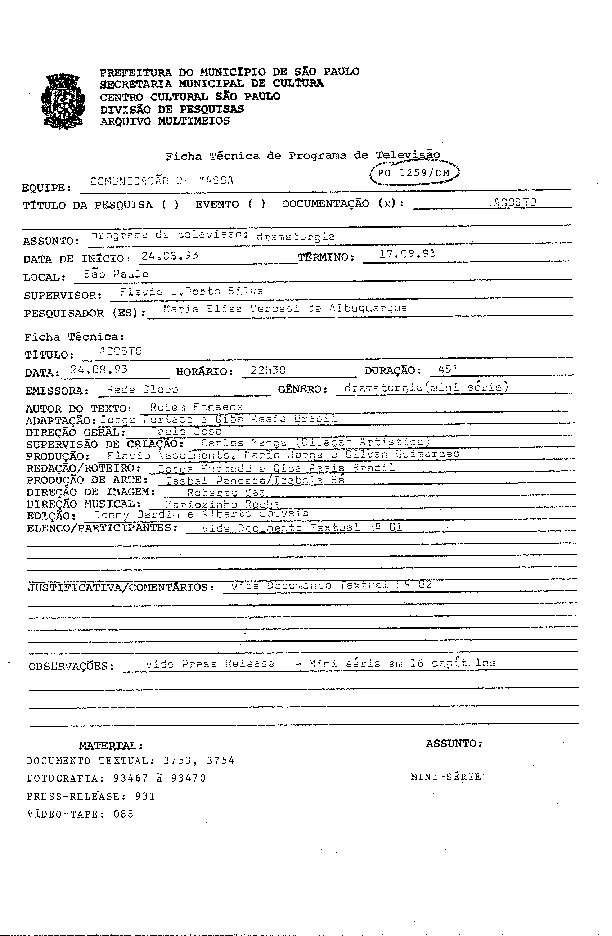 PREFEITURA DO MUNICÍPIO DE SÃO PAULO
SECRETARIA MUNICIPAL DE CULTURA
CENTRO CULTURAL SÃO PAULO
DIVISÃO DE PESQUISAS
ARQUIVO MULTIMEIOS
Ficha Técnica de Programa de Televisão
PO 1259/CM
EQUIPE: COMUNICAÇÃO DE MASSA
TÍTULO DA PESQUISA ( ) EVENTO ( ) DOCUMENTAÇÃO (x): AGOSTO
ASSUNTO: programa de televisão: dramaturgia
DATA DE INÍCIO: 24.08.93 TÉRMINO: 17.09.93
LOCAL: São Paulo
SUPERVISOR: Flavio Porto Silva
PESQUISADOR (ES): Maria Elisa Vercesi de Albuquerque
Ficha Técnica:
TÍTULO: AGOSTO
DATA: 24.08.93 HORÁRIO: 22h30 DURAÇÃO: 45'
EMISSORA: Rede Globo GÊNERO: dramaturgia(mini série)
AUTOR DO TEXTO: Rubem Fonseca
ADAPTAÇÃO: Jorge Furtado e Giba Assis Brasil
DIREÇÃO GERAL: Paulo José
SUPERVISÃO DE CRIAÇÃO: Carlos Manga (Direção Artística)
PRODUÇÃO: Flavio Nascimento, Mario Jorge e Gilvan Guimarães
REDAÇÃO/ROTEIRO: Jorge Furtado e Giba Assis Brasil
PRODUÇÃO DE ARTE: Isabel Pancada/Tiza
DIREÇÃO DE IMAGEM: Roberto
DIREÇÃO MUSICAL: Mariozinho Rocha
EDIÇÃO: Jardim e Alberto Gouveia
ELENCO/PARTICIPANTES: vide Documento Textual nº 01
JUSTIFICATIVA/COMENTÁRIOS: Vide Documento Textual nº 02
OBSERVAÇÕES: vide Press Release - Mini série em 16 capítulos
MATERIAL: ASSUNTO:
DOCUMENTO TEXTUAL: 3753, 3754
FOTOGRAFIA: 93467 à 93470 MINI-SÉRIE
PRESS-RELEASE: 931
VÍDEO-TAPE: 088